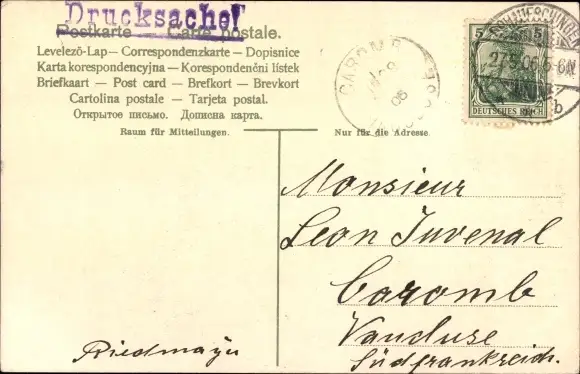 Drucksache!
Postkarte — Carte postale.
Levelező-Lap — Correspondenzkarte — Dopisnice
Karta korespondencyjna — Korespondenční lístek
Briefkaart — Post card — Brefkort — Brevkort
Cartolina postale — Tarjeta postal.
Открытое письмо. Дописна карта.
Raum für Mitteilungen.
Nur für die Adresse
CAROMB
06
5 5
27.5.06.5-6N
DEUTSCHES REICH
b
Monsieur
Leon Juvenal
Caromb
Vaucluse
Südfrankreich.
Riedmayr